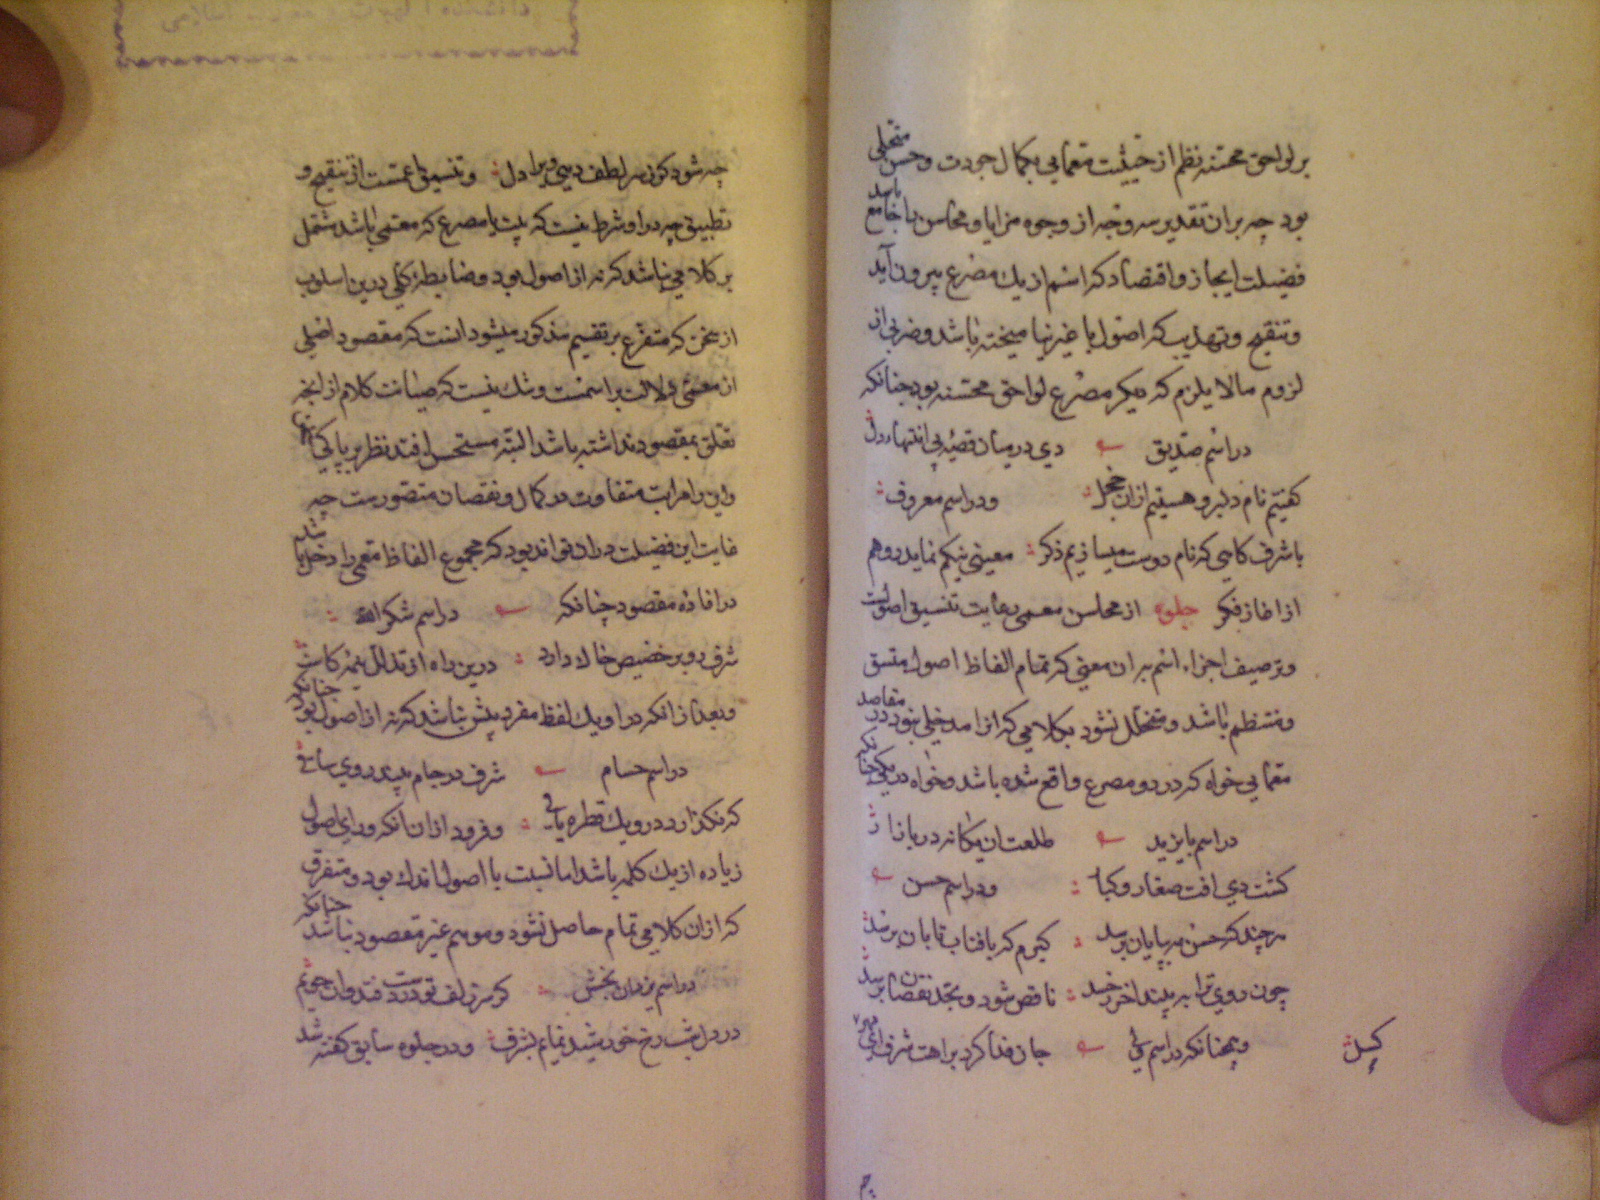 بر لواحق محسنه نظم از حیثیت معمایی بکمال جودت و حسن متحلی
بود چه بران تقدیر سه وجه از وجوه مزایا و محاسن را جامع باشد
فضیلت ایجاز و اقتصاد که اسم از یك مصرع بیرون آید
و تنقیح و تهذیب که اصول با غیرنیامیخته باشد و ضربی از
لزوم مالا یلزم که دیگر مصرع لواحق محسنه بود چنانکه
در اسم صدیق دی در میان قصهٔ بی انتهاء دل
کفتیم نام دلبر و هستیم ازان خجل و در اسم معروف
با شرف کاسی که نام دوست میسازیم ذکر معینی نیکم نماید روهم
از اغاز فکر جلوه از محاسن معمی رعایت تنسیق اصولست
و ترصیف اجزاء اسم بر ان معنی که تمام الفاظ اصول متسق
و منتظم باشد و متخلل نشود بکلامی که انرا مدخلی نبود در مقاصد
معمایی خواه که در دو مصرع واقع شده باشد و خواه در یکی چنانکه
در اسم بایزید طلعت ان یکانه در بازار
کشت دی افت صغار و کبار و در اسم حسن
هر چند که حسن مه بپایان برسد کیرم که بافتاب تابان برسد
چون روی ترا بر بیند اخر خسد ناقص شود و بحد نقصان برسد
و همچنانکه در اسم علی جان فدا کرد براهت شرف ای
کسل
چه شود کز سر لطف دهی ویرا دل و تنسیق اعمست از تنقیح و
تطبیق چه در او شرط نیست که بیت یا مصرع که معمی باشد مشتمل
بر کلامی نباشد که نه از اصول بود و ضابطهٔ کلی درین اسلوب
از سخن که متفرع بر تقسیم مذکور میشود انست که مقصود اصلی
از معمی دلالت بر اسمست و شك نیست که صیانت کلام از انچه
تعلق بمقصود نداشته باشد البته مستحسن افتد نظر بر پاکی
و این را مراتب متفاوت در کمال و نقصان متصورست چه
غایت این فضیلت دران تواند بود که مجموع الفاظ معمی را دخل باشد
در افادهٔ مقصود چنانکه در اسم شکرالله
شرف رو بر حضیض خاك دارد درین راه از تذلل نیم کاش
و بعد از انکه در او یك لفظ مفرد بیش نباشد که نه از اصول بود چنانکه
در اسم حسام شرف در جام بیند روی ساقی
که نکذارد درو یك قطره باقی و فروتر ازان انکه ورای اصول
زیاده از یك کلمه باشد اما نسبت با اصول اندك بود و متفرق
که ازان کلامی تمام حاصل نشود و موهم غیر مقصود نباشد چنانکه
در اسم یزدان بخش کر سر زلف تو در دست فتد وان جویم
در دل شب رخ خورشید نمایم بشرف و در جلوه سابق کفته شد